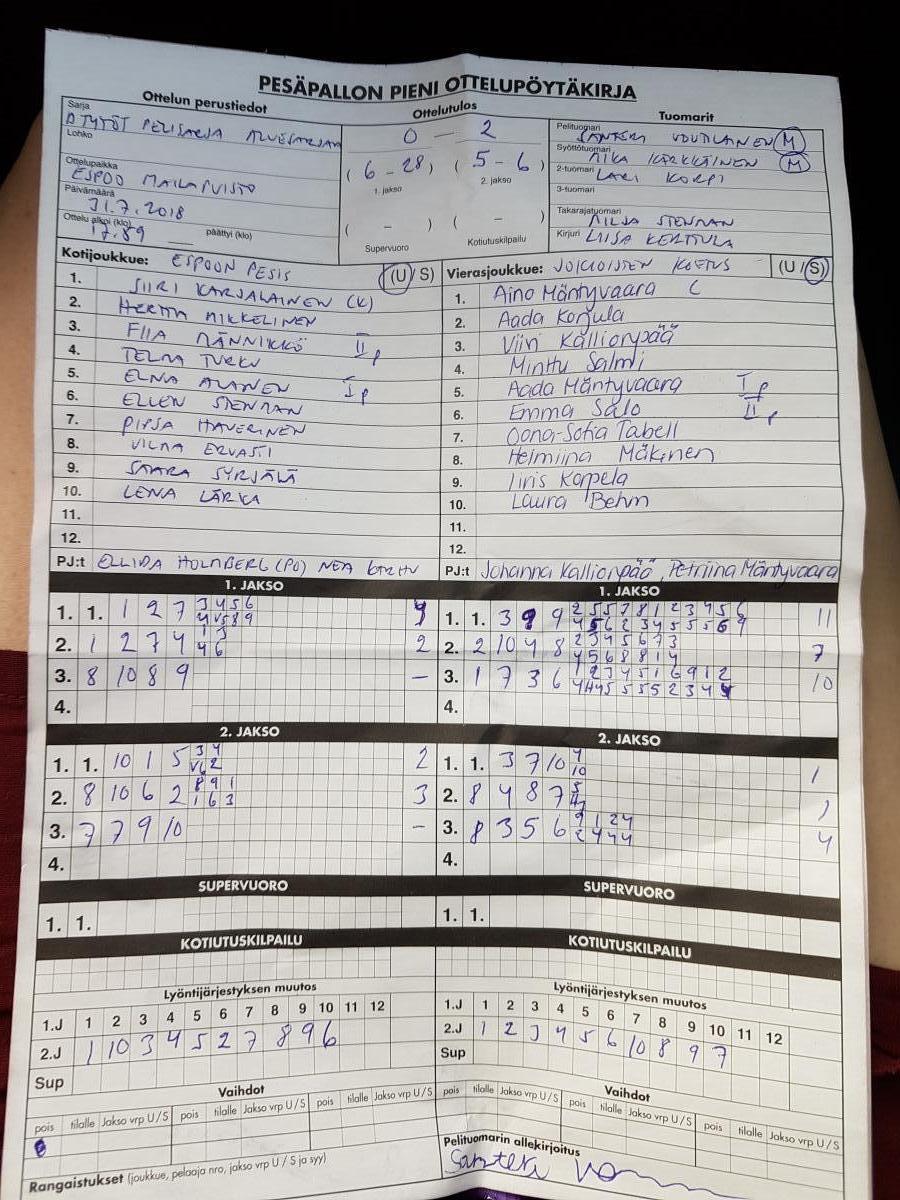 PESÄPALLON PIENI OTTELUPÖYTÄKIRJA
Ottelun perustiedot
Ottelutulos
Tuomarit
Sarja
D TYTÖT PELISARJA ALUESARJA
Lohko
Ottelupaikka
ESPOO MAILAPUISTO
Päivämäärä
31.7.2018
Ottelu alkoi (klo)
päättyi (klo)
0 – 2
(6 - 28) (5 - 6)
1. jakso 2. jakso
( - ) ( - )
Supervuoro Kotiutuskilpailu
Pelituomari
SANTERI VOUTILAINEN (M)
Syöttötuomari
MIKA KÄRKKÄINEN (M)
2-tuomari
LARI KORPI
3-tuomari
Takarajatuomari
MILJA STENMAN
Kirjuri LIISA KERTTULA
Kotijoukkue: ESPOON PESIS (U/S)
1. SIIRI KARJALAINEN (K)
2. HERTTA MIKKELINEN
3. FIIA MÄNNIKKÖ II p
4. TELMA TURKU
5. ELNA ALANEN I p
6. ELLEN STENMAN
7. PIPSA HAVERINEN
8. VILMA ERVASTI
9. SAARA SYRJÄLÄ
10. LENA LÄRKA
11.
12.
PJ:t ELLIDA HOLMBERG (PO) NEA
Vierasjoukkue: JOKIOISTEN KOETUS (U/S)
1. Aino Mäntyvaara C
2. Aada Korjula
3. Viivi Kallionpää
4. Minttu Salmi
5. Aada Mäntyvaara I p
6. Emma Salo II p
7. Oona-Sofia Tabell
8. Helmiina Mäkinen
9. Iiris Korpela
10. Laura Behm
11.
12.
PJ:t Johanna Kallionpää, Petriina Mäntyvaara
1. JAKSO
1. 1. 1 2 7 3 4 5 6
2. 1 2 7 4 2
3. 8 10 8 9 –
4.
1. JAKSO
1. 1. 3 9 9 11
2. 2 10 4 8 7
3. 1 7 3 6 10
4.
2. JAKSO
1. 1. 10 1 5 3 4 2
2. 8 10 6 2 8 9 1 3
1 6 3
3. 7 7 9 10 –
4.
2. JAKSO
1. 1. 3 7 10 1
2. 8 4 8 7 1
3. 8 3 5 6 9 1 2 4 4
2 4 4 4
4.
SUPERVUORO
1. 1.
SUPERVUORO
1. 1.
KOTIUTUSKILPAILU
KOTIUTUSKILPAILU
Lyöntijärjestyksen muutos
1.J 1 2 3 4 5 6 7 8 9 10 11 12
2.J 1 10 3 4 5 2 7 8 9 6
Sup
Lyöntijärjestyksen muutos
1.J 1 2 3 4 5 6 7 8 9 10 11 12
2.J 1 2 3 4 5 6 10 8 9 7
Sup
Vaihdot
pois tilalle Jakso vrp U/S pois tilalle Jakso vrp U/S pois tilalle Jakso vrp U/S
Vaihdot
pois tilalle Jakso vrp U/S pois tilalle Jakso vrp U/S pois tilalle Jakso vrp U/S
Rangaistukset (joukkue, pelaaja nro, jakso vrp U/S ja syy)
Pelituomarin allekirjoitus
Santeri